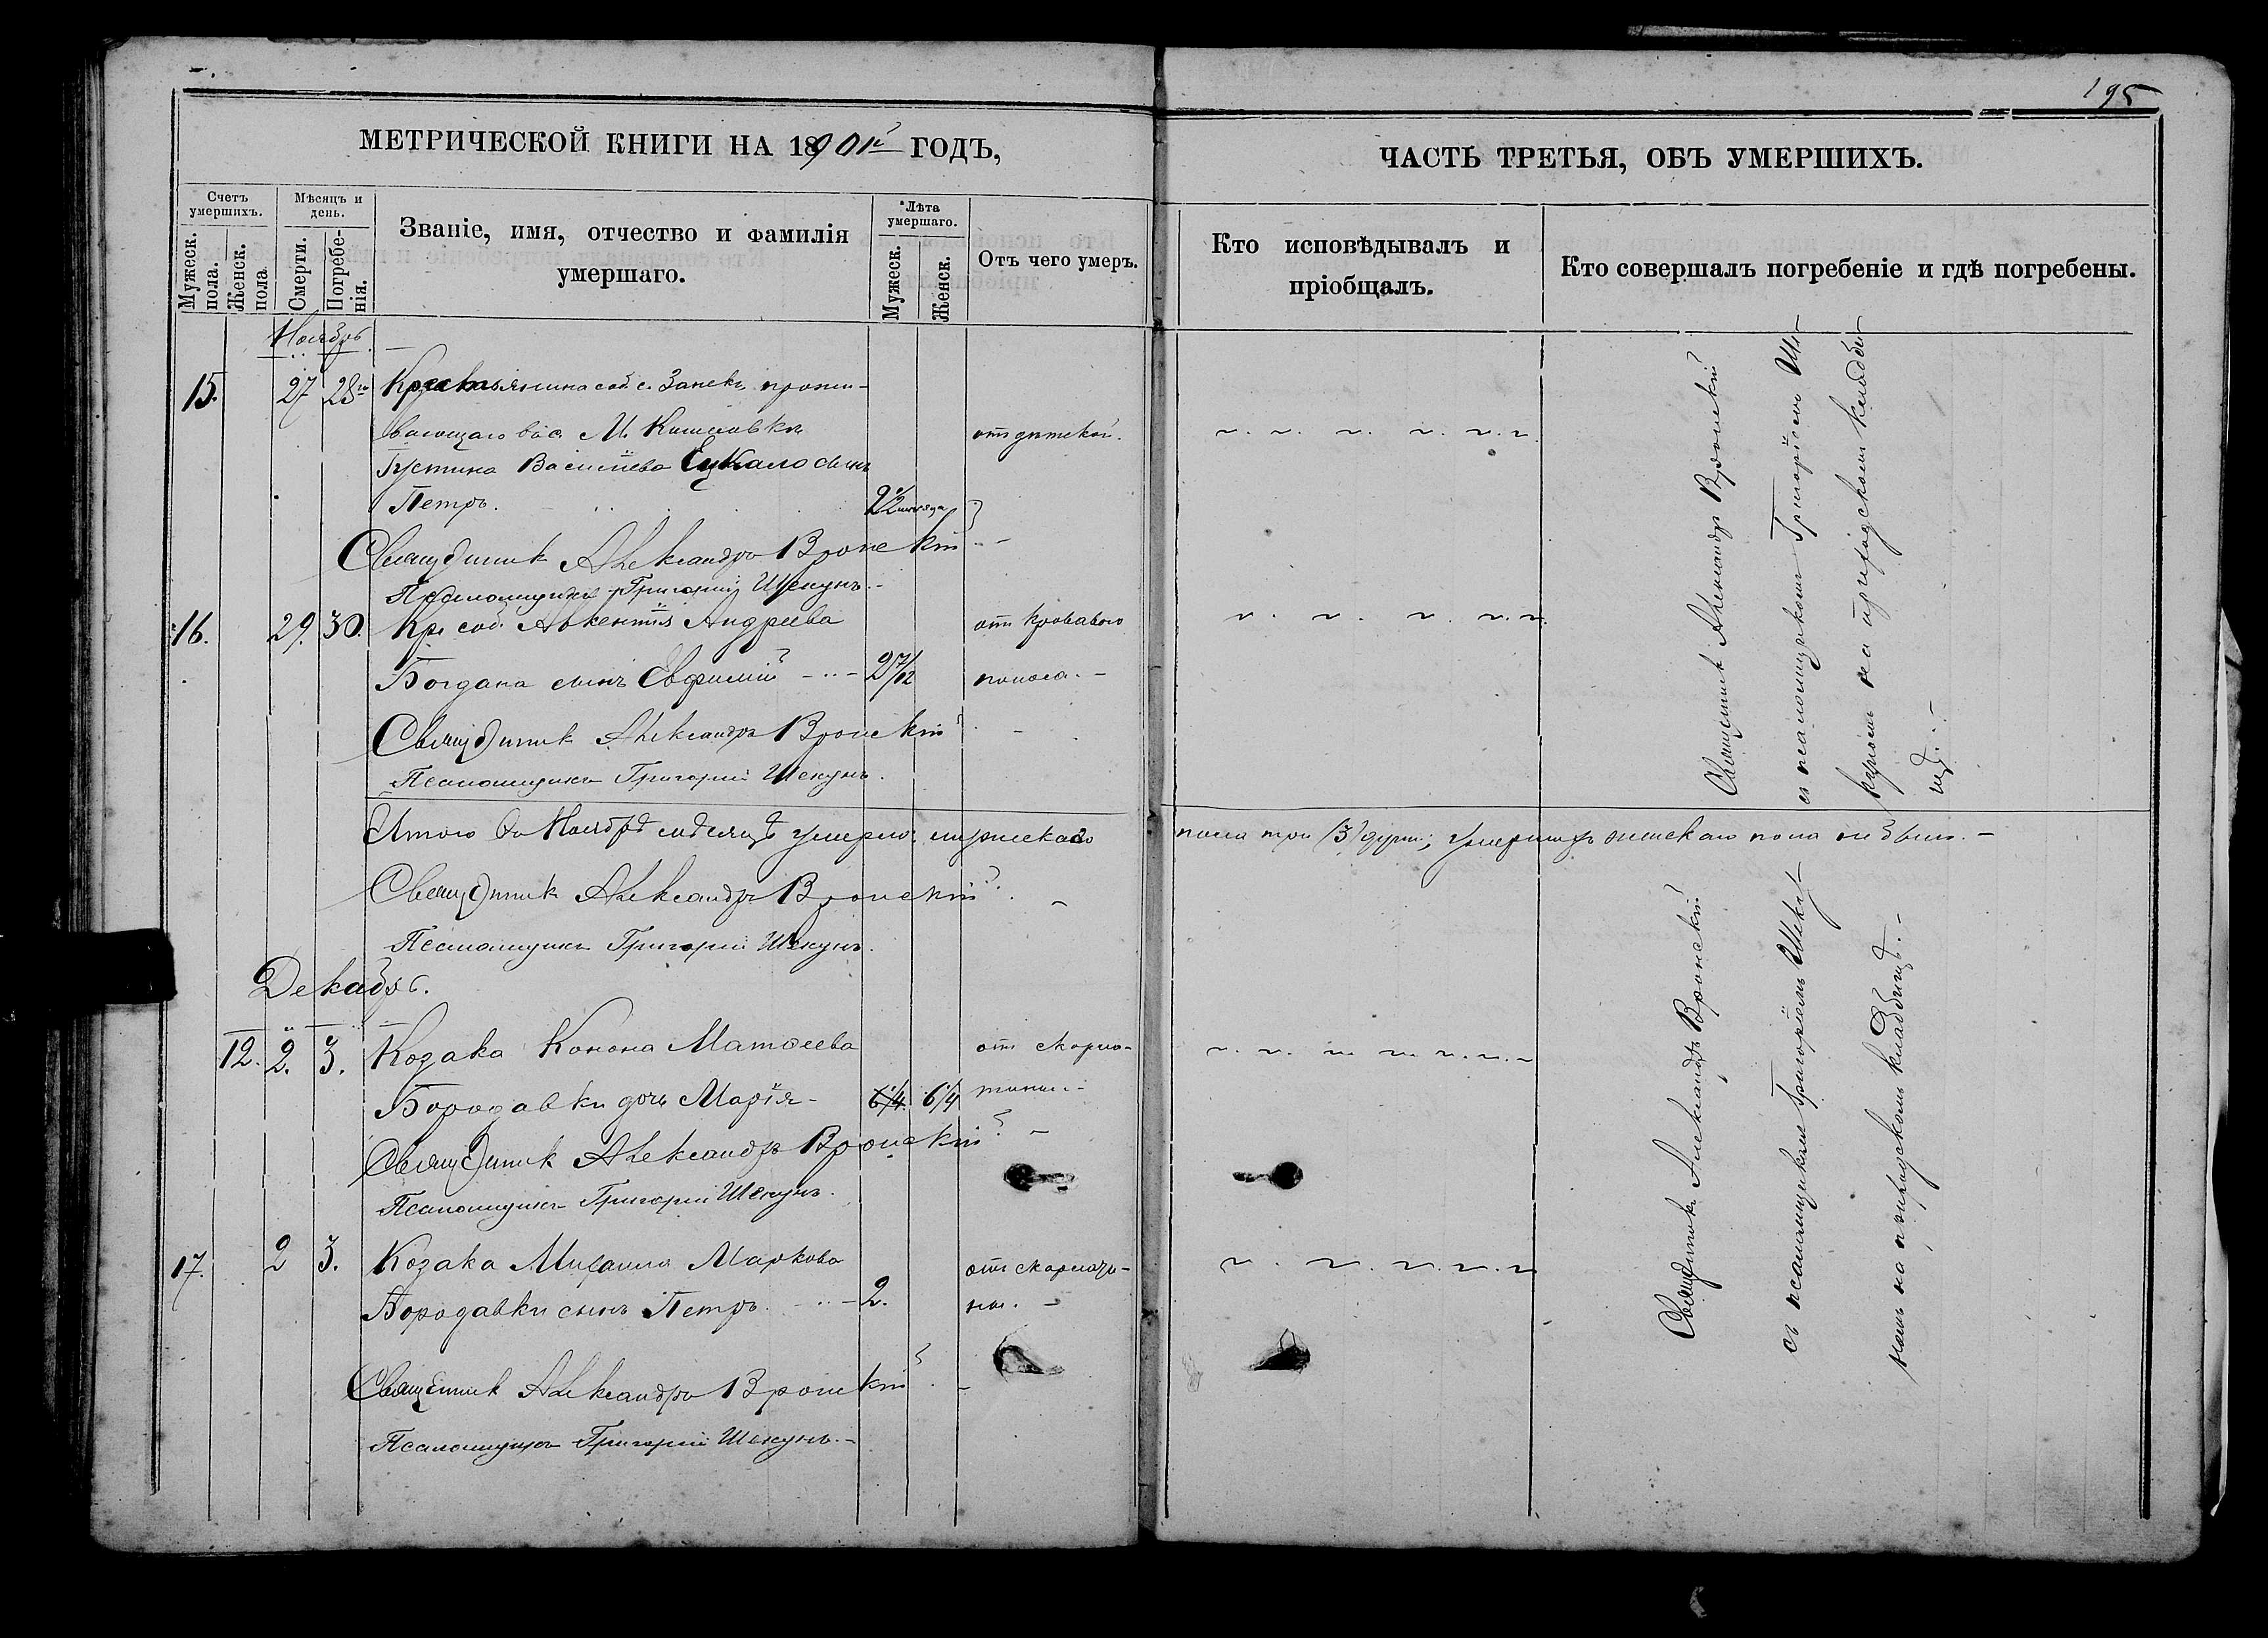 195
МЕТРИЧЕСКОЙ КНИГИ НА 1901й ГОДЪ,
ЧАСТЬ ТРЕТЬЯ, ОБЪ УМЕРШИХЪ.
Счетъ умершихъ.
Мужеск. пола.
Женск. пола
Мѣсяцъ и день.
Смерти.
Погребенія.
Званіе, имя, отчество и фамилія умершаго.
Лѣта умершаго.
Мужеск.
Женск.
Отъ чего умеръ.
Кто исповѣдывалъ и пріобщалъ.
Кто совершалъ погребеніе и гдѣ погребены.
Ноябрь
15. 27 28го соб. с. прожи-
вающаго въ с. М. отъ дѣтской.
Устина Василіева Ецкало сынъ
Петръ. 2 1/2 мѣсяца
Священникъ Александръ Вронскій
Псаломщикъ Григорій Шекунъ.-
16. 29. 30. Кр. соб. Авкентія Андреева отъ кроваваго
Богдана сынъ Евфимій 2 7/12 поноса. -
Священникъ Александръ Вронскій
Псаломщикъ Григорій Шекунъ.
Священникъ Александръ Вронскій
съ псаломщикомъ Григоріемъ Ше-
куномъ на приходскомъ кладби-
щѣ.-
Итого въ Ноябрѣ мѣсяцѣ умерло мужескаго пола три (3) души; умершихъ женскаго пола не было.-
Священникъ Александръ Вронскій
Псаломщикъ Григорій Шекунъ.
Декабрь.
12. 2. 3. Козака Конона Матѳеева отъ скарла-
Бородавки дочь Марія- 6/4 6/4 тины.-
Священникъ Александръ Вронскій
Псаломщикъ Григорій Шекунъ.
17. 2 3. Козака Михаила Маркова отъ скарлати-
Бородавки сынъ Петръ. 2. ны. -
Священникъ Александръ Вронскій
Псаломщикъ Григорій Шекунъ.-
Священникъ Александръ Вронскій
съ псаломщикомъ Григоріемъ Шеку-
номъ на приходскомъ кладбищѣ.-